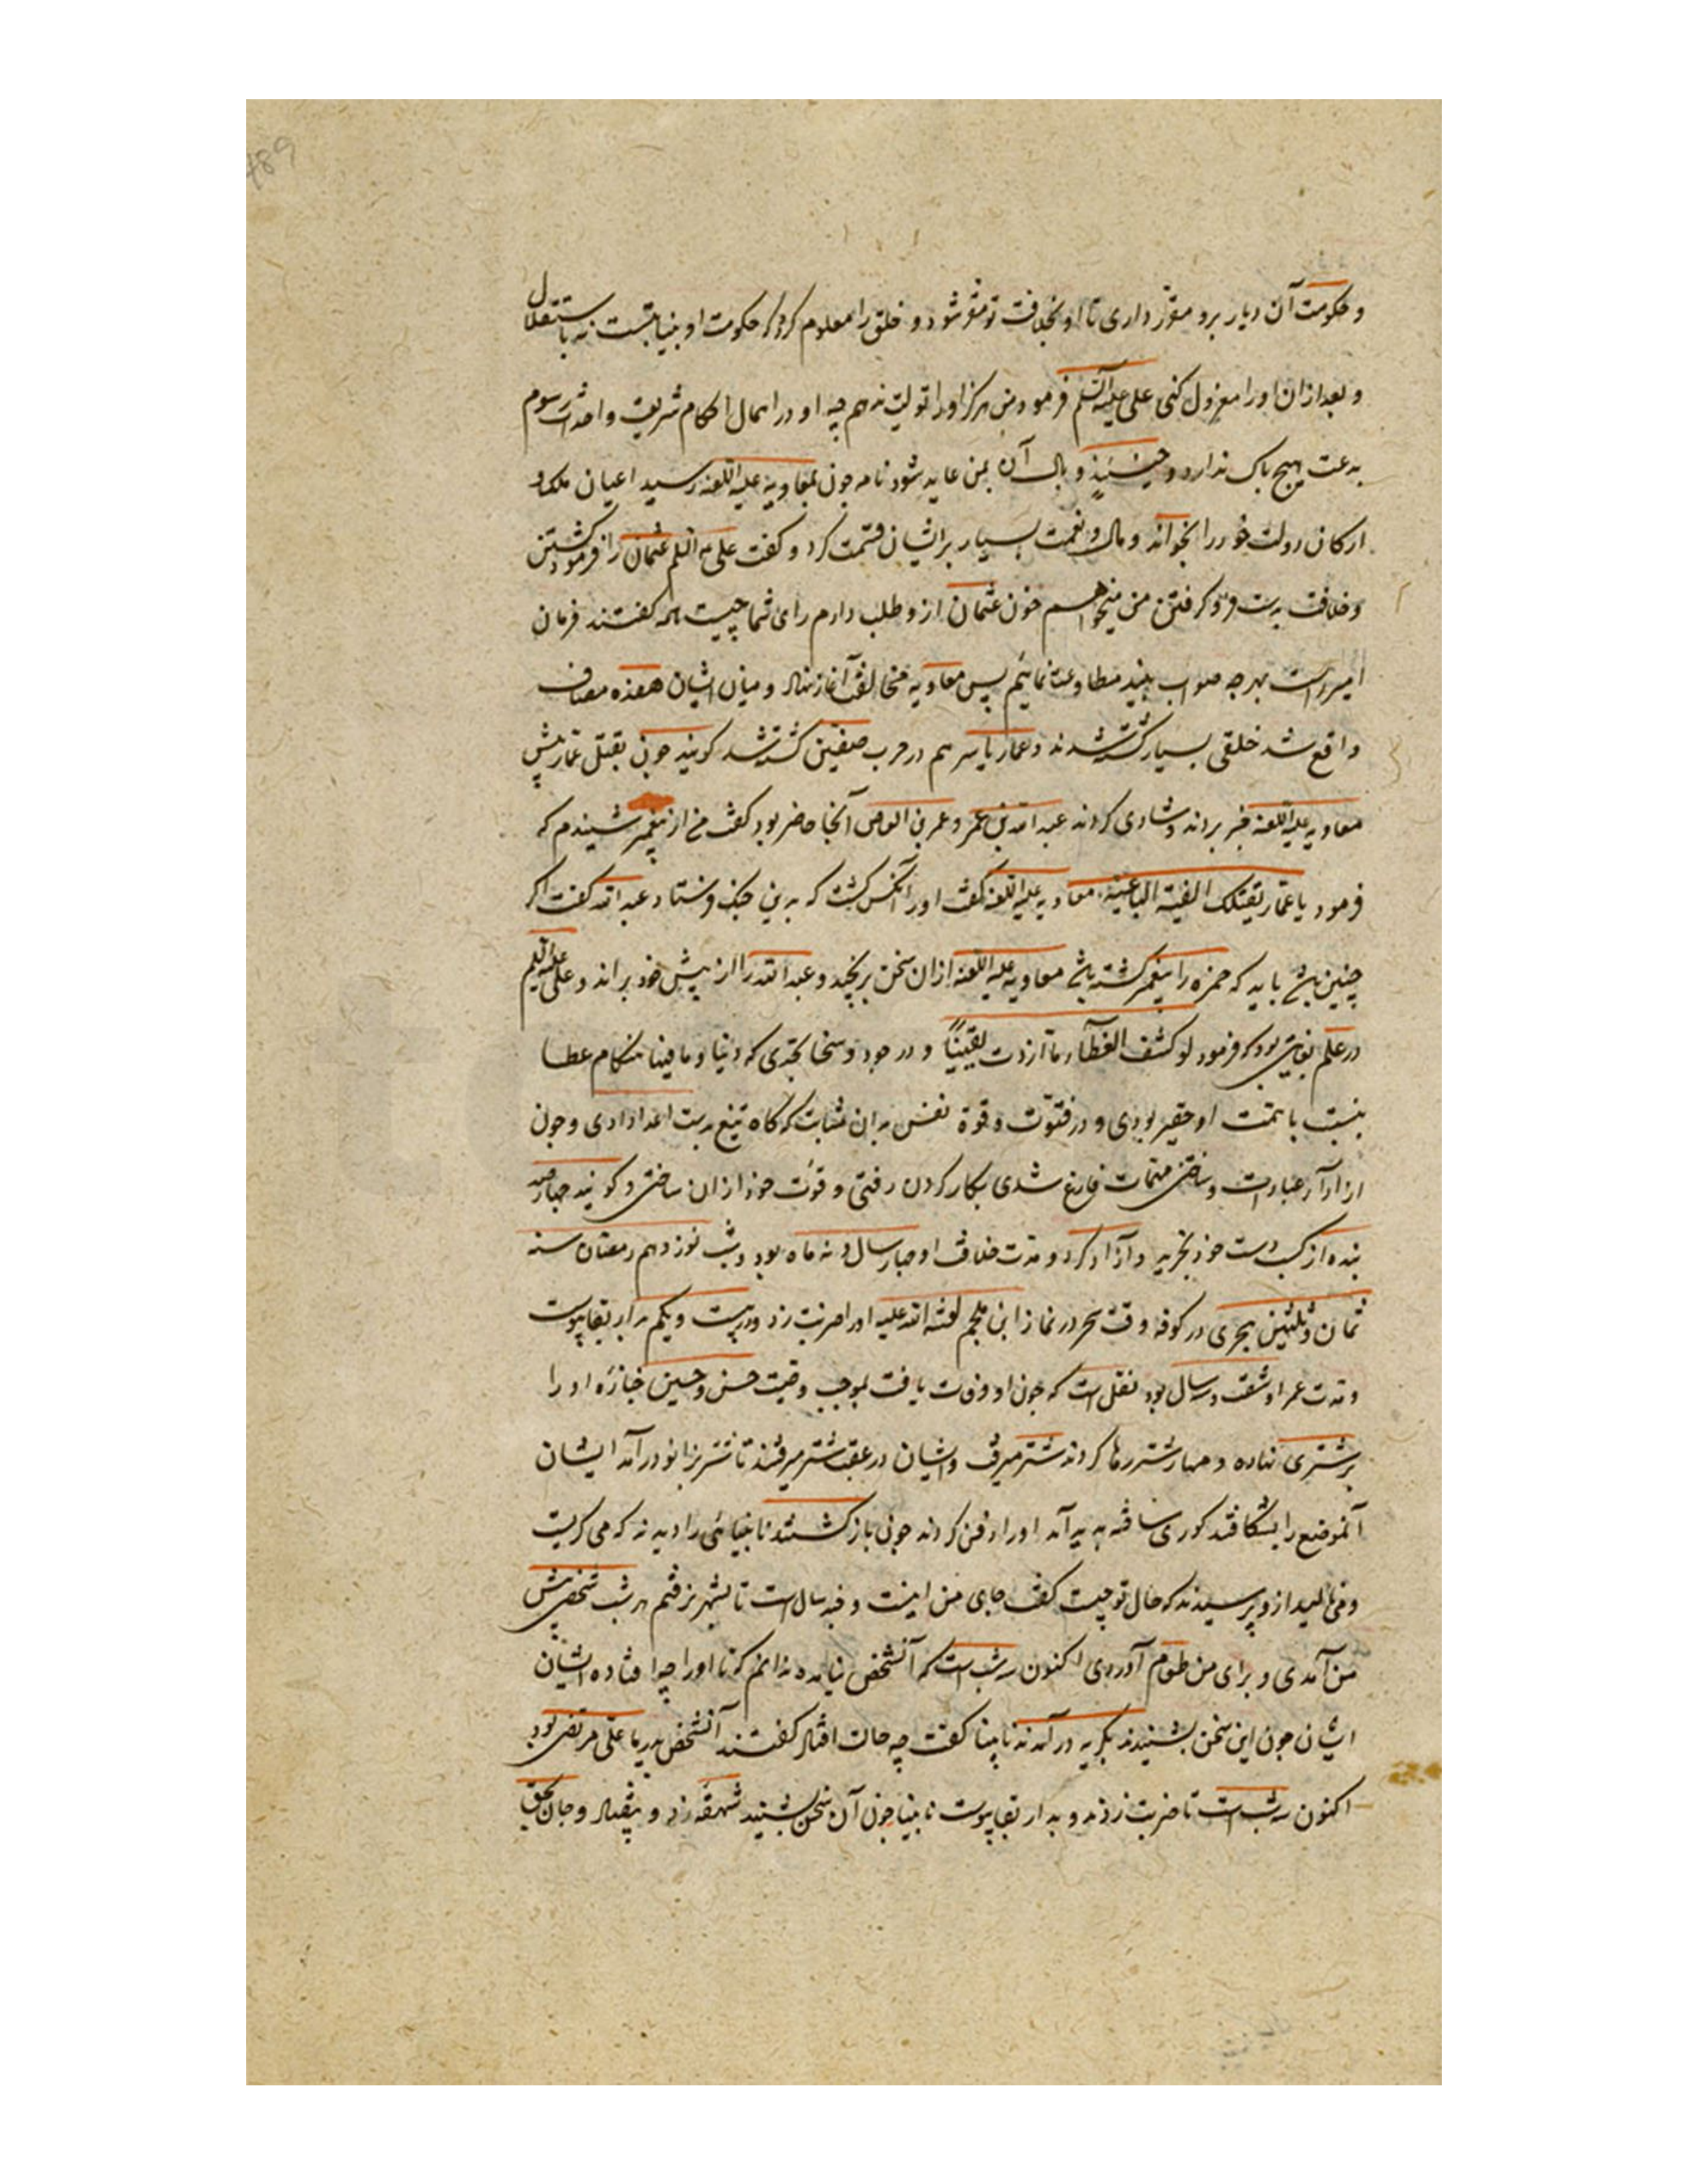 و حکومت آن دیار برو مقرر داری تا او بخلافت تو مقر شود و خلق را معلوم کرد که حکومت او بنیابتست نه باستقلال
و بعد ازان او را معزول کنی علی علیه السلم فرمود من هرکز او را تولیت ندهم چه او در اهمال احکام شریعت و احداث رسوم
بدعت هیچ باک ندارد و حینئذٍ وبال آن بمن عاید شود نامه چون بمعاویه علیه اللعنه رسید اعیان ملک و
ارکان دولت خود را بخواند و مال و نعمت بسیار بر ایشان قسمت کرد و کفت علی علیه السلم عثمان را فرمود کشتن
و خلافت بدست فرو کرفتن من میخواهم خون عثمان ازو طلب دارم رای شما چیست همه کفتند فرمان
امیر راست بهرچه صواب بیند مطاوعت نمائیم پس معاویه مخالفت آغاز نهاد و میان ایشان هفده مصاف
واقع شد خلقی بسیار کشته شدند و عمار یاسر هم در حرب صفین کشته شد کویند چون بقتل عمار پیش
معاویه علیه اللعنه خبر بردند و شادی کردند عبد الله بن عمر و عمرو بن العاص آنجا حاضر بود کفت من از پیغمبر شنیدم که
فرمود یا عمار تقتلک الفئة الباغیة معاویه علیه اللعنه کفت او را آنکس کشت که بدین جنک فرستاد عبد الله کفت اکر
چنین باشد باید که حمزه را پیغمبر کشته باشد معاویه علیه اللعنه ازان سخن برنجید و عبد الله را از پیش خود براند و علی علیه السلم
در علم بغایتی بود که فرمود لو کشف الغطاء ما ازددت یقینًا و در جود و سخا بحدی که دنیا و ما فیها هنکام عطا
بنسبت با همت او حقیر بودی و در فتوّت و قوة نفس بدان مثابت که کاه تیغ بدست اعدا دادی و چون
از اداء عبادات و ساختن مهمات فارغ شدی بکار کردن رفتی و قوت خود ازان ساختی و کویند چهارصد
بنده از کسب دست خود بخرید و آزاد کرد و مدت خلافت او چهار سال و نه ماه بود و شب نوزدهم رمضان سنه
ثمان و ثلثین هجری در کوفه وقت سحر در نماز ابن ملجم لعنه الله علیه او را ضربت زد و در بیست و یکم بدار بقا پیوست
و مدت عمر او شصت و سه سال بود نقل است که چون او وفات یافت بموجب وصیت حسن و حسین جنازه او را
بر شتری نهاده و مهار شتر رها کردند شتر میرفت و ایشان در عقب شتر میرفتند تا شتر بزانو در آمد ایشان
آنموضع را بشکافتند کوری ساخته پدید آمد او را دفن کردند چون باز کشتند نابینائی را دیدند که می کریست
و می نالید ازو پرسیدند که حال تو چیست کفت جای من اینست و چند سال است تا بشهر نرفتم هر شب شخصی پیش
من آمدی و برای من طعام آوردی اکنون سه شب است که آنشخص نیامد ندانم که تا او را چه افتاده ایشان
ایشان چون این سخن بشنیدند بکریه در آمدند نابینا کفت چه حالت افتاد کفتند آنشخص پدر ما علی مرتضی بود
اکنون سه شب است تا ضربت زدند و بدار بقا پیوست نابینا چون آن سخن بشنید شهقه زد و بیفتاد و جان بحق